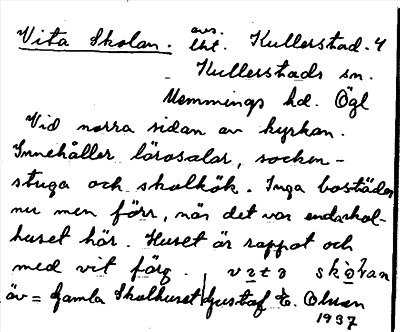 Vita Skolan. avs. lht. Kullerstad. 4
Kullerstads sn.
Memmings hd. Ögl
Vid norra sidan av kyrkan.
Innehåller lärosalar, socken-
stuga och skolkök. Inga bostäder
nu men förr, när det var enda skol-
huset här. Huset är rappat och
med vit färg.
äv = Gamla Skolhuset Gustaf E. Olsson
1937